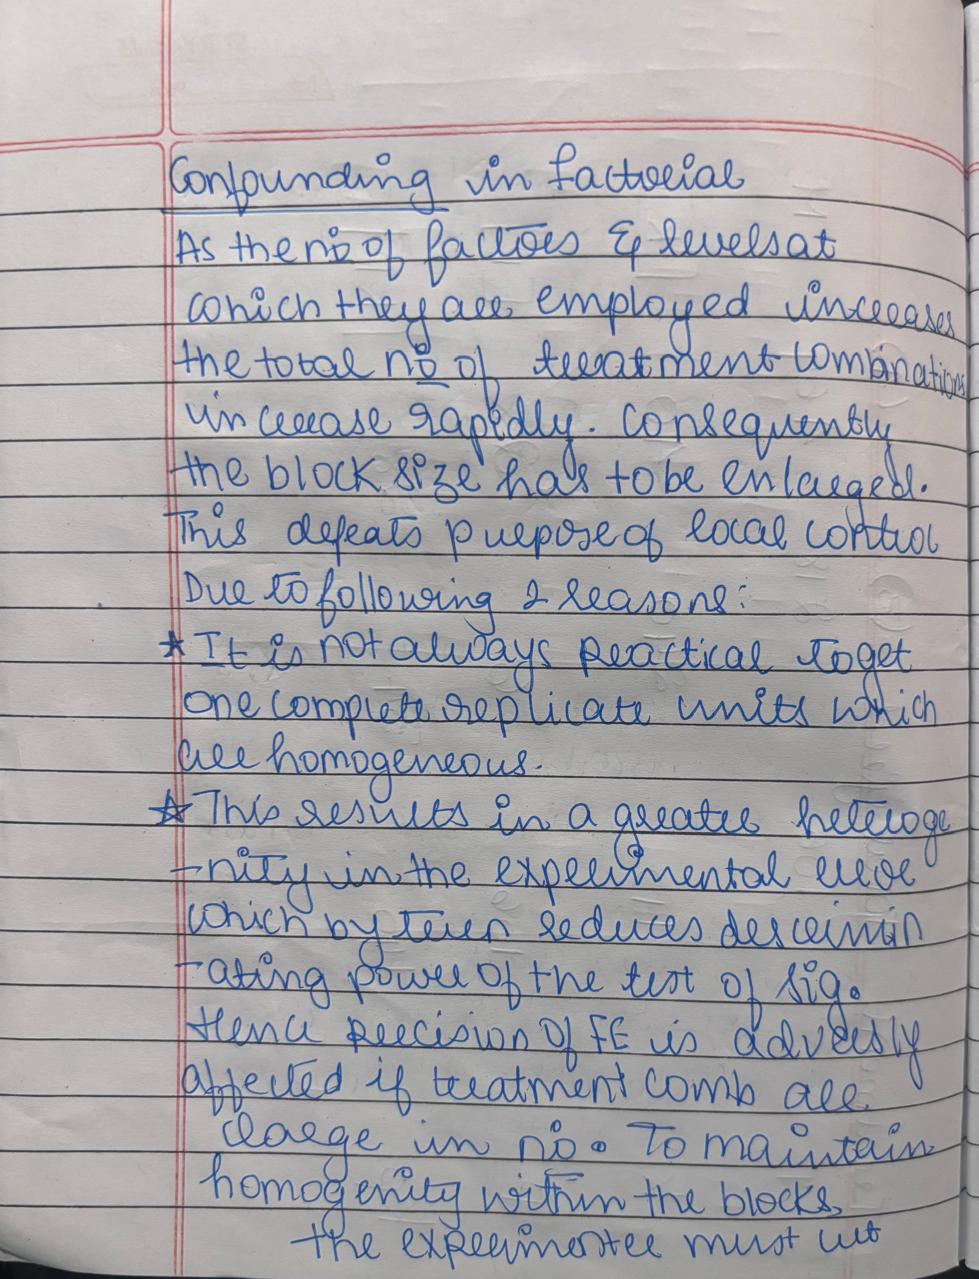 Confounding in factorial
As the no of factors & levels at
which they are employed increases
the total no of treatment combinations
increase rapidly. Consequently
the block size has to be enlarged.
This defeats purpose of local control
Due to following 2 reasons:
★ It is not always practical to get
one complete replicate units which
are homogeneous.
★ This results in a greater heteroge
-nity in the experimental error
which by turn reduces descrimin
-ating power of the test of sig.
Hence precision of FE is adversly
affected if treatment comb are
large in no. To maintain
homogenity within the blocks,
the experimenter must cut